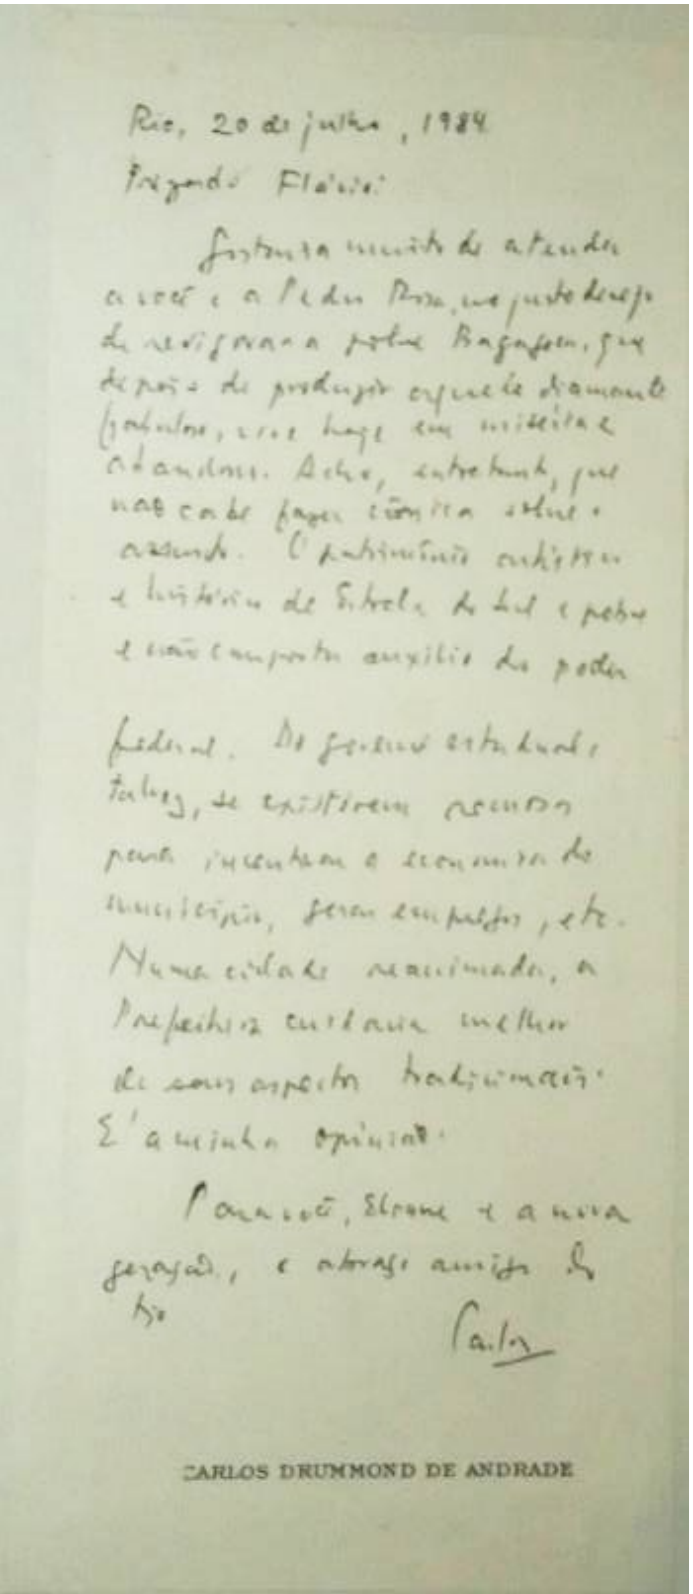 Rio, 20 de julho, 1984
Prezado Flávio:
Gostaria muito de atender
a você e a Pedro Rosa, no justo desejo
de revigorar a pobre Bagagem, que
depois de produzir aquele diamante
fabuloso, vive hoje em miséria e
abandono. Acho, entretanto, que
não cabe fazer crônica sobre o
assunto. O patrimônio artístico
e histórico de Estrela do Sul é pobre
e não comporta auxílio do poder
federal. Do governo estadual,
talvez, se existirem recursos
para incentivar a economia do
município, gerar empregos, etc.
Numa cidade reanimada, a
Prefeitura cuidaria melhor
de seus aspectos tradicionais.
É a minha opinião.
Para você, e a nova
geração, o abraço amigo do
tio
Carlos
CARLOS DRUMMOND DE ANDRADE